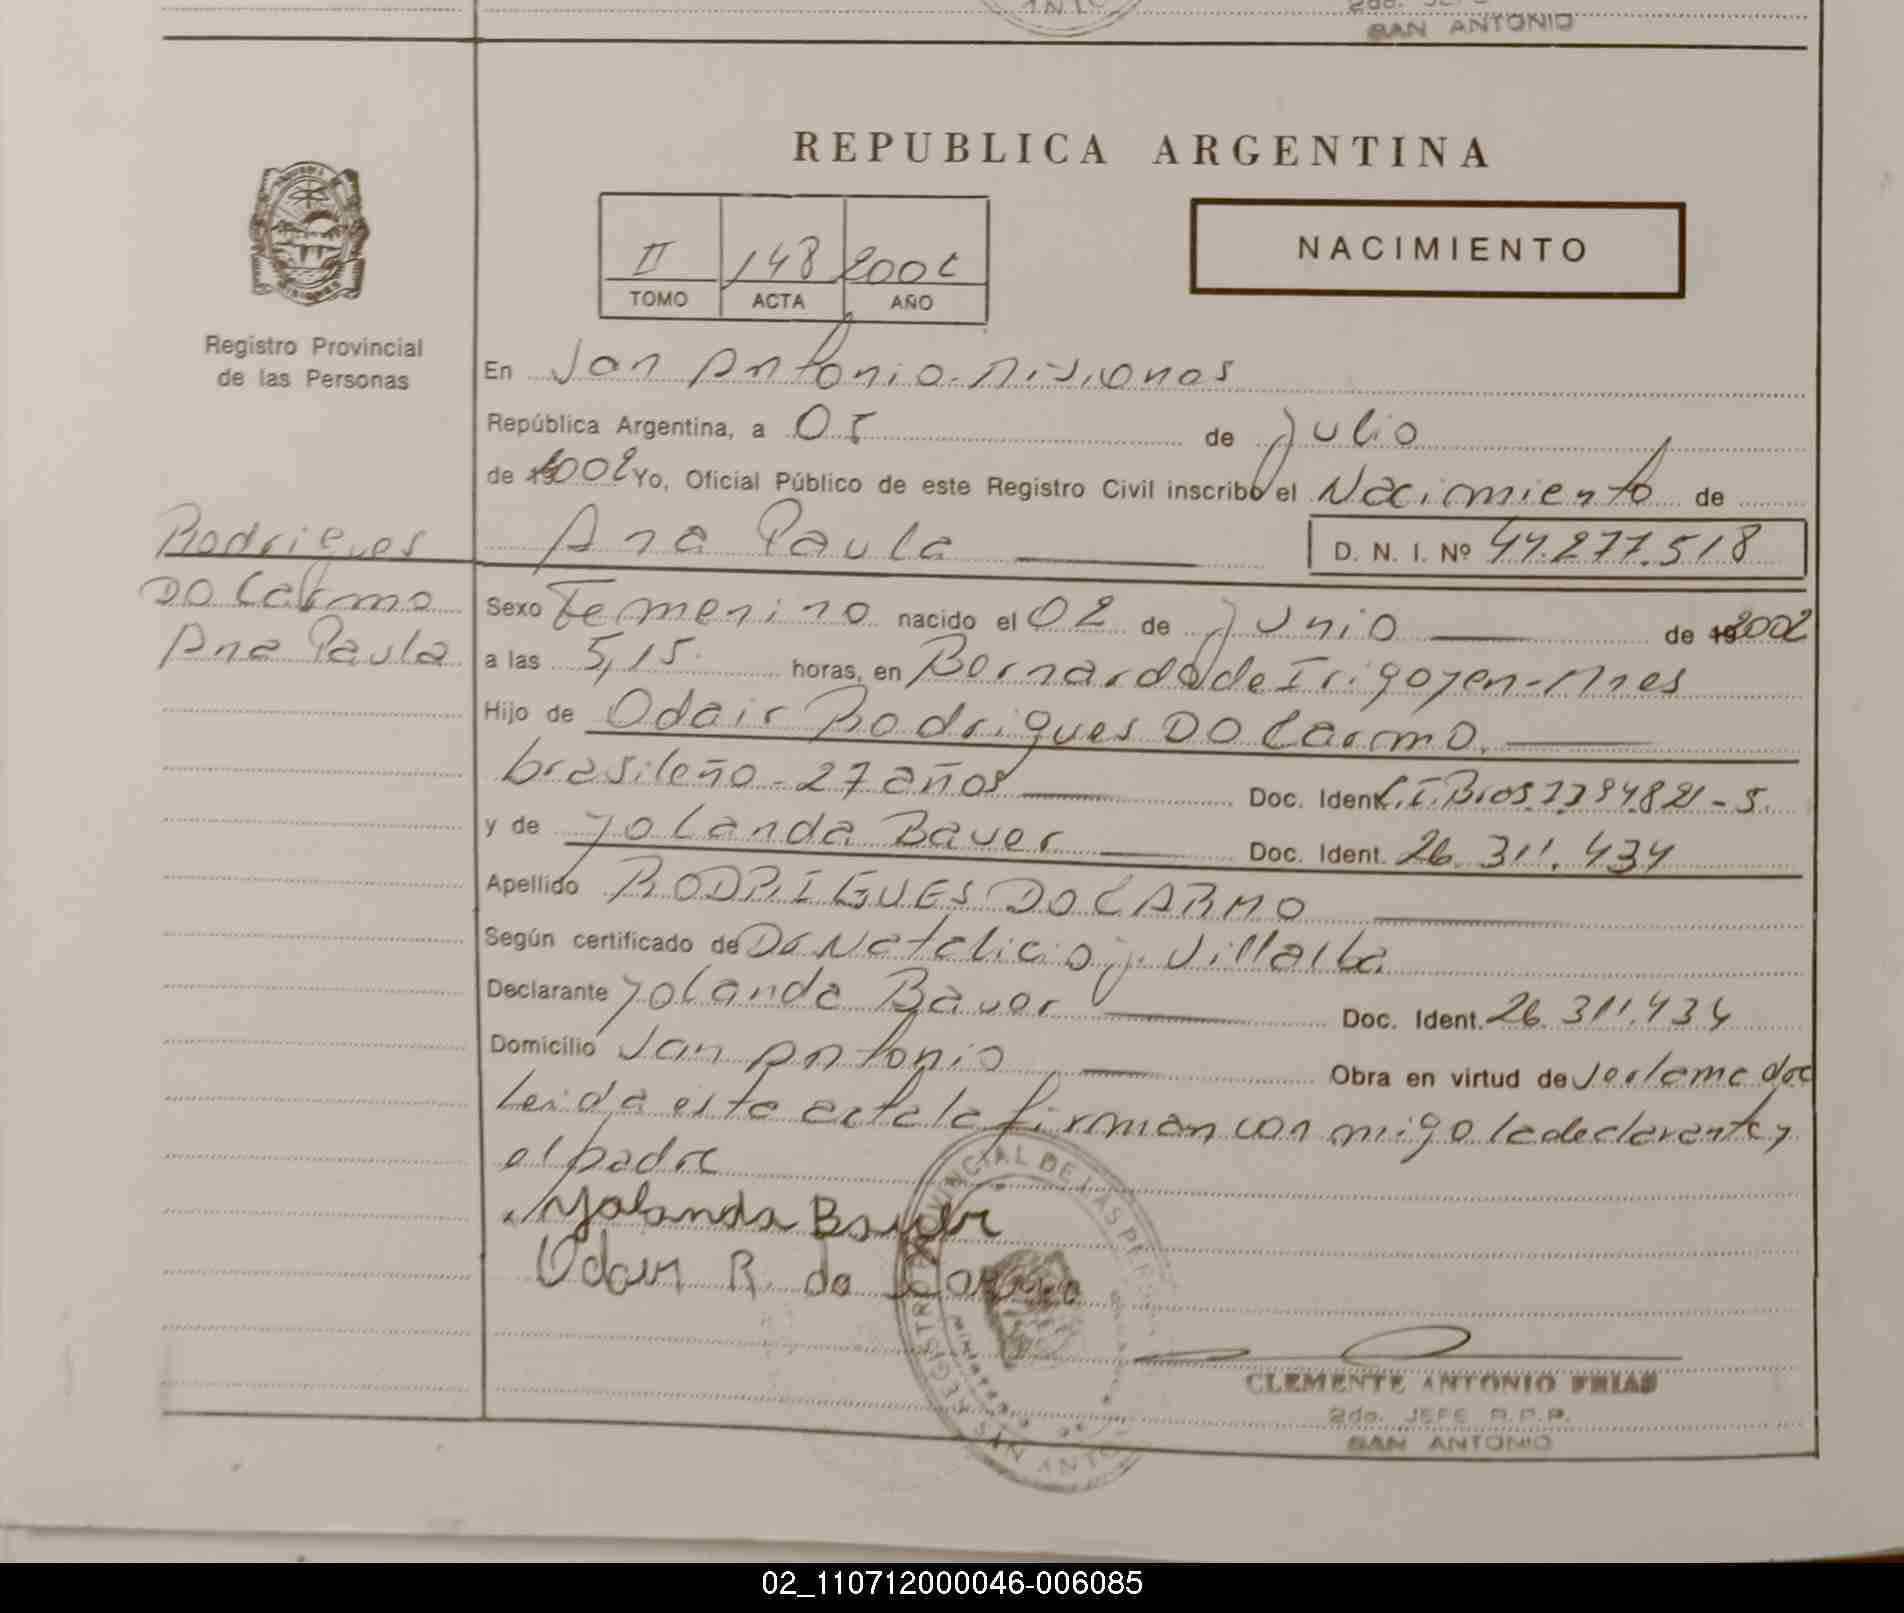 SAN ANTONIO
REPUBLICA ARGENTINA
NACIMIENTO
II 148 2002
TOMO ACTA AÑO
Registro Provincial
de las Personas
En San Antonio - Misiones
República Argentina, a 05 de Julio
de 2002 Yo, Oficial Público de este Registro Civil inscribo el Nacimiento de
Ana Paula D. N. I. Nº 44.277.518
Rodrigues
Do Carmo
Ana Paula
Sexo Femenino nacido el 02 de Junio de 2002
a las 5,15 horas, en Bernardo de Irigoyen - Mnes
Hijo de Odair Rodrigues Do Carmo.
brasileño - 27 años Doc. Ident. C.I.Bras.
y de Yolanda Bauer Doc. Ident. 26.311.434
Apellido RODRIGUES DO CARMO
Según certificado de Dr Natalicio J. Villalba
Declarante Yolanda Bauer Doc. Ident. 26.311.434
Domicilio San Antonio Obra en virtud de ser la madre
Leida esta acta la firman con migo la declarante y
el padre
Yolanda Bauer
Odair R. do Carmo
REGISTRO PROVINCIAL DE LAS PERSONAS
SAN ANTONIO
CLEMENTE ANTONIO FRIAS
2do. JEFE R.P.P.
SAN ANTONIO
02_110712000046-006085